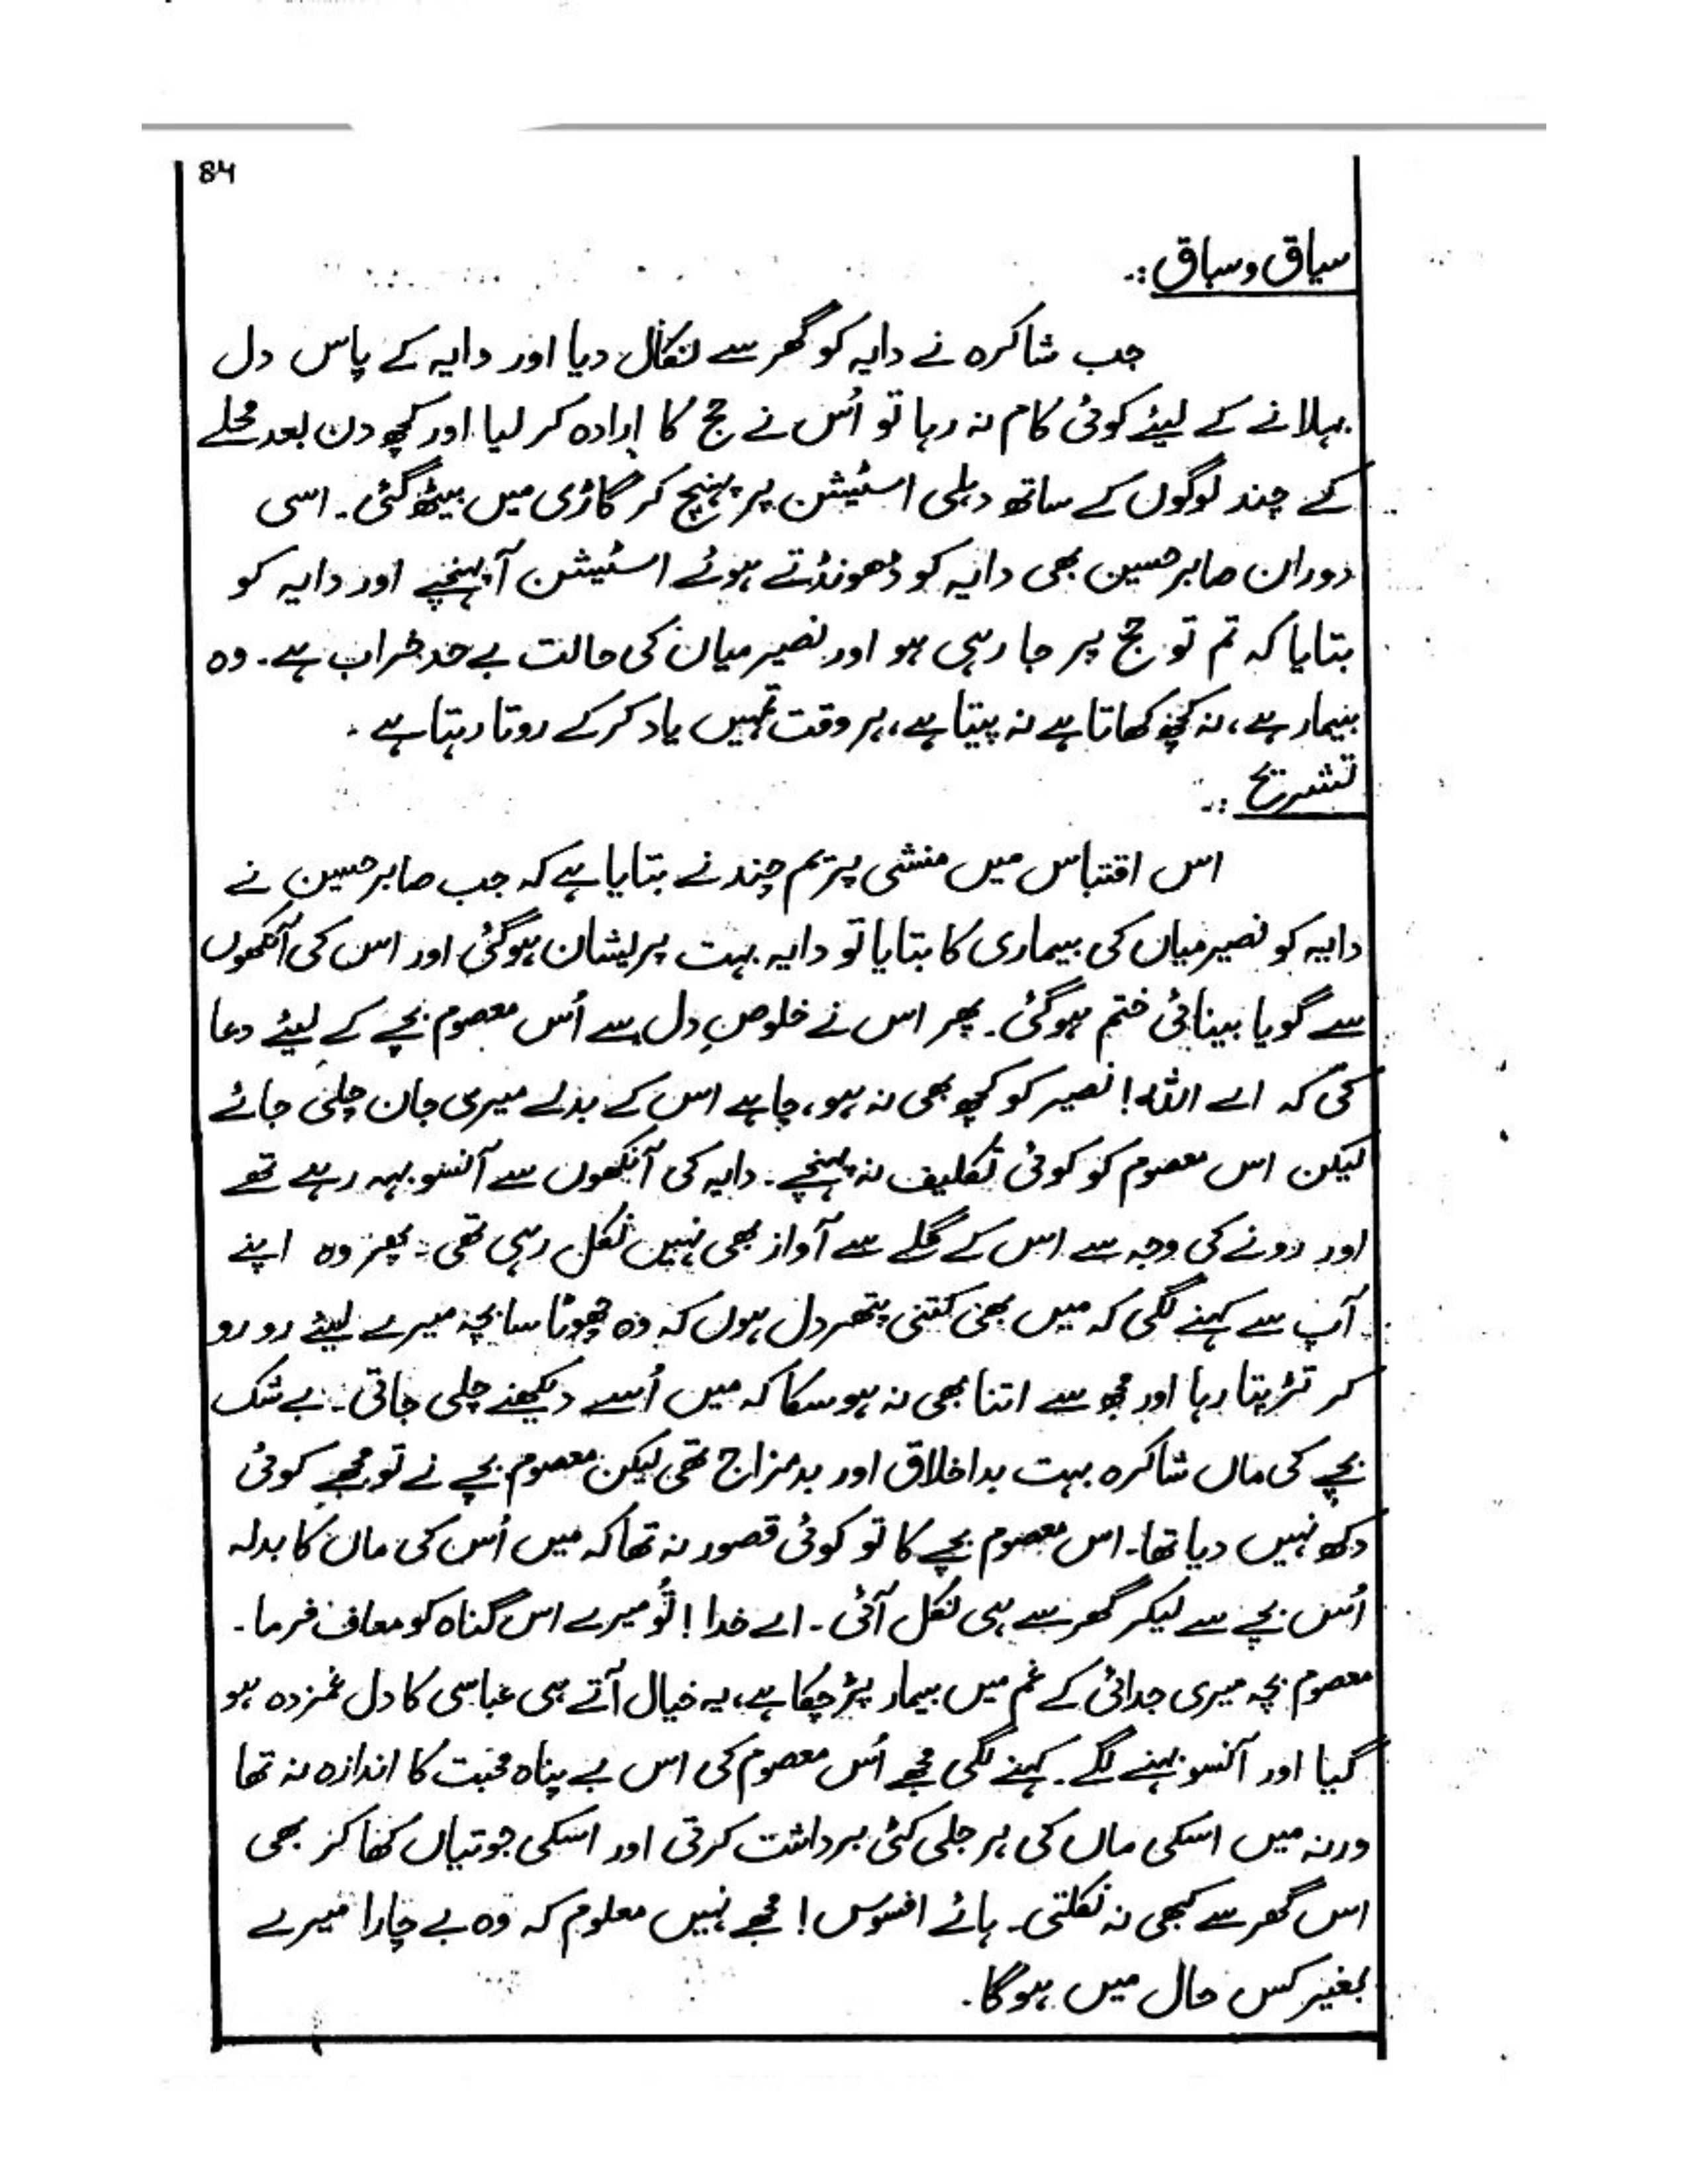 84
سیاق و سباق :۔
جب شاکرہ نے دایہ کو گھر سے نکال دیا اور دایہ کے پاس دل
بہلانے کے لیئے کوئی کام نہ رہا تو اُس نے حج کا ارادہ کر لیا اور کچھ دن بعد محلے
کے چند لوگوں کے ساتھ دہلی اسٹیشن پر پہنچ کر گاڑی میں بیٹھ گئی۔ اسی
دوران صابر حسین بھی دایہ کو ڈھونڈتے ہوئے اسٹیشن آ پہنچے اور دایہ کو
بتایا کہ تم تو حج پر جا رہی ہو اور نصیر میاں کی حالت بے حد خراب ہے۔ وہ
بیمار ہے، نہ کچھ کھاتا ہے نہ پیتا ہے، ہر وقت تمہیں یاد کر کے روتا رہتا ہے۔
تشریح :۔
اس اقتباس میں منشی پریم چند نے بتایا ہے کہ جب صابر حسین نے
دایہ کو نصیر میاں کی بیماری کا بتایا تو دایہ بہت پریشان ہو گئی اور اس کی آنکھوں
سے گویا بینائی ختم ہو گئی۔ پھر اس نے خلوصِ دل سے اُس معصوم بچے کے لیئے دعا
کی کہ اے اللہ! نصیر کو کچھ بھی نہ ہو، چاہے اس کے بدلے میری جان چلی جائے
لیکن اس معصوم کو کوئی تکلیف نہ پہنچے۔ دایہ کی آنکھوں سے آنسو بہہ رہے تھے
اور رونے کی وجہ سے اس کے گلے سے آواز بھی نہیں نکل رہی تھی۔ پھر وہ اپنے
آپ سے کہنے لگی کہ میں بھی کتنی پتھر دل ہوں کہ وہ چھوٹا سا بچہ میرے لیئے رو رو
کر تڑپتا رہا اور مجھ سے اتنا بھی نہ ہو سکا کہ میں اُسے دیکھنے چلی جاتی۔ بے شک
بچے کی ماں شاکرہ بہت بداخلاق اور بدمزاج تھی لیکن معصوم بچے نے تو مجھے کوئی
دکھ نہیں دیا تھا۔ اس معصوم بچے کا تو کوئی قصور نہ تھا کہ میں اُس کی ماں کا بدلہ
اُس بچے سے لیکر گھر سے ہی نکل آئی۔ اے خدا! تُو میرے اس گناہ کو معاف فرما۔
معصوم بچہ میری جدائی کے غم میں بیمار پڑ چکا ہے، یہ خیال آتے ہی عباسی کا دل غمزدہ ہو
گیا اور آنسو بہنے لگے۔ کہنے لگی مجھے اُس معصوم کی اس بے پناہ محبت کا اندازہ نہ تھا
ورنہ میں اسکی ماں کی ہر جلی کٹی برداشت کرتی اور اسکی جوتیاں کھا کر بھی
اس گھر سے کبھی نہ نکلتی۔ ہائے افسوس! مجھے نہیں معلوم کہ وہ بے چارا میرے
بغیر کس حال میں ہو گا۔